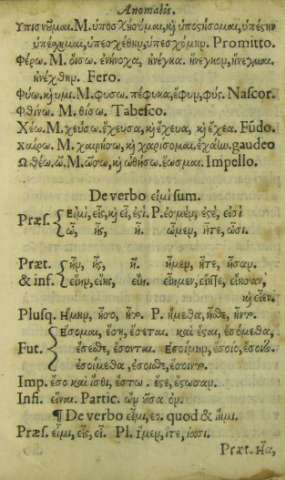 Anomalis.
Υπισνῆμαι. M. ὑποσχήσομαι, κỳ ὑποσήσομαι, ὑπέσην
ὑπέσχημαι, ὑπεσχέθην, ὑπεσχόμην. Promitto.
Φέρω. M. οἴσω. ἐνήνοχα, ἤνεγκα. ἤνεγκον, ἤνεγμαι.
ἠνέχθην. Fero.
Φύω, κỳ υμι. M. φυσω. πέφυκα, ἔφυν, φύς. Nascor.
Φθίνω. M. θίσω. Tabesco.
Χέω. M. χεύσω. ἔχευσα, κỳ ἔχευα, κỳ ἔχεα. Fūdo.
χαίρω. M. χαιρήσω, κỳ χαρίσομαι. gaudeo
Ωθέω. ῶ. M. ὤσω, κỳ ὠθήσω. ἔωσμαι. Impello.
De verbo εἰμὶ sum.
Præs. Εἰμὶ, εἶς, κỳ εἶ, ἐστὶ. P. ἐσμὲν, ἐστὲ, εἰσὶ
ὦ, ᾖς, ᾖ. ὦμεν, ἦτε, ὦσι.
Præt. ἦν, ἦς, ἦ. ἦμεν, ἦτε, ἦσαν.
& inf. εἴην, εἴης, εἴη. εἴημεν, εἴητε, εἴησαν,
κỳ εἶεν.
Plusq. Ημην, ἦσο, ἦτο. P. ἤμεθα, ἦσθε, ἦντο.
Εσομαι, ἔσῃ, ἔσεται. καὶ ἔσται, ἐσόμεθα,
Fut. ἔσεσθε, ἔσονται. Εσοίμην, ἔσοιο, ἔσοιτο.
ἐσοίμεθα, ἔσοισθε, ἔσοιντο.
Imp. ἔσο καὶ ἴσθι, ἔστω. ἔστε, ἔστωσαν.
Infi. εἶναι. Partic. ὢν οὖσα ὄν.
¶ De verbo εἶμι, eo. quod &
Præs. εἶμι, εἶς, εἶ. Pl. ἴμεν, ἴτε, ἴασι.
Præt. Ηα,